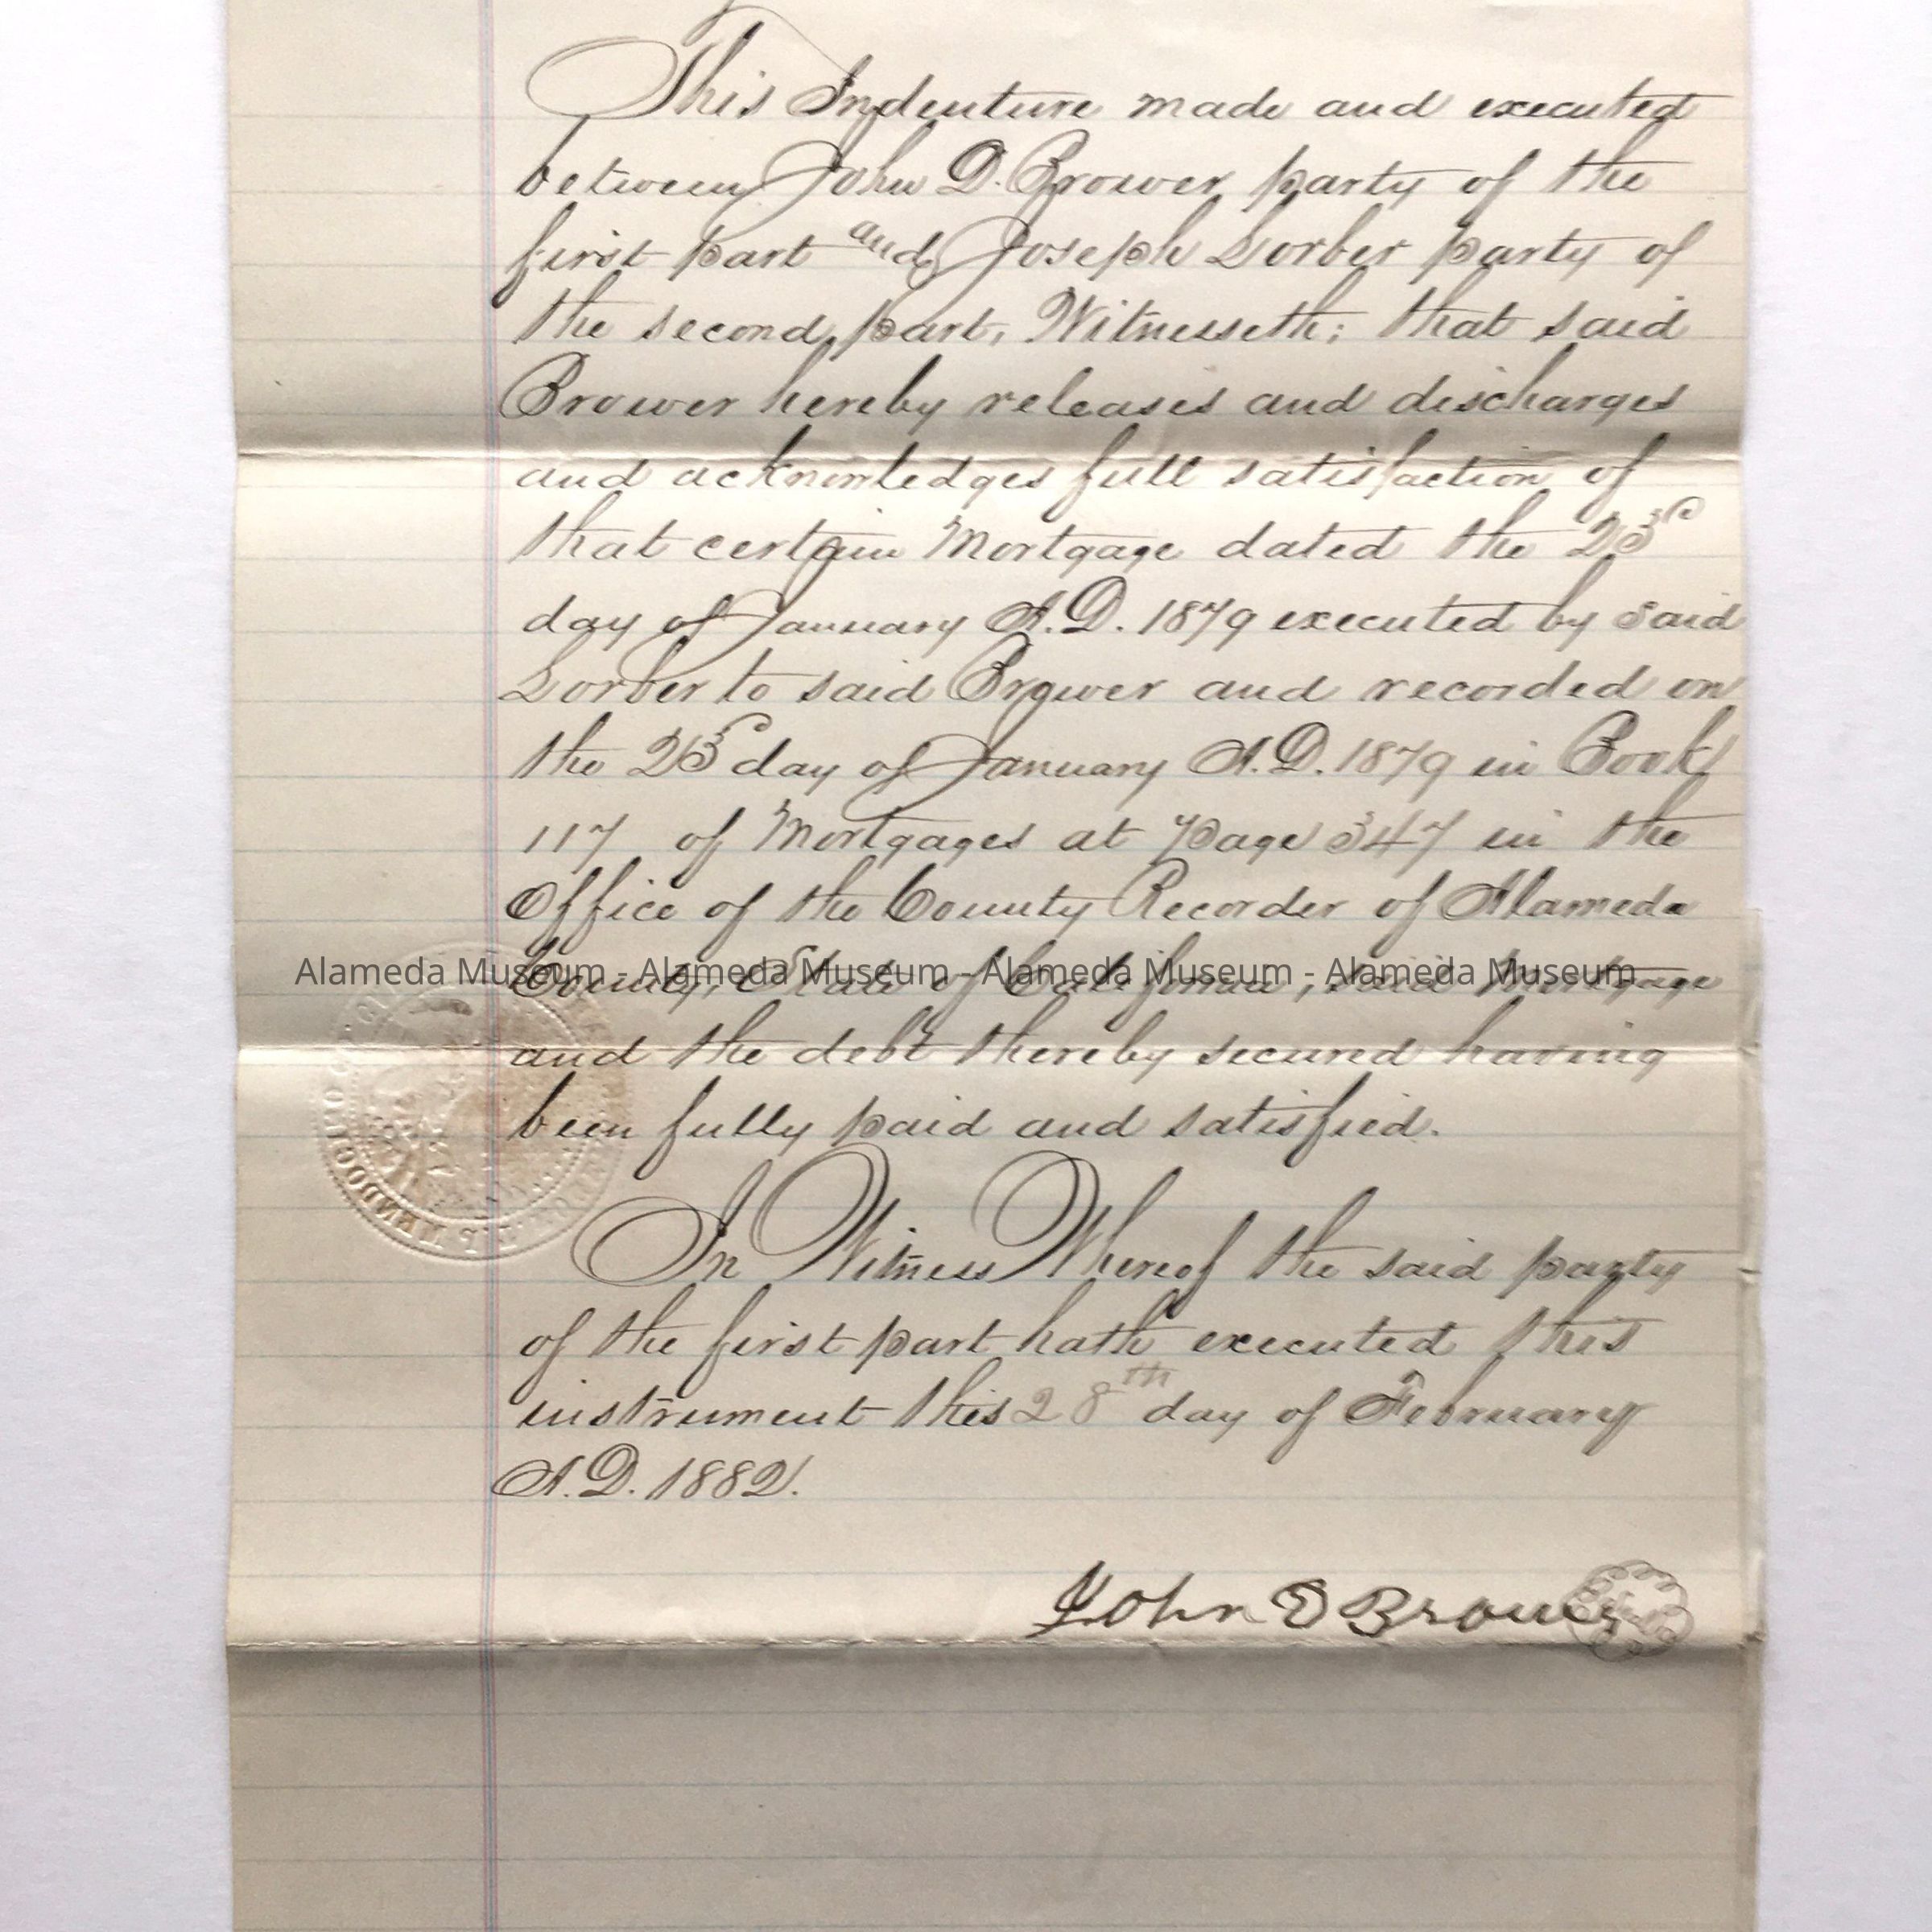 This Indenture made and executed
between John D. Brower party of the
first part and Joseph Lorber party of
the second part, Witnesseth; that said
Brower hereby releases and discharges
and acknowledges full satisfaction of
that certain Mortgage dated the 23d
day of January A.D. 1879 executed by said
Lorber to said Brower and recorded on
the 23d day of January A.D. 1879 in Book
117 of Mortgages at Page 347 in the
Office of the County Recorder of Alameda
County, State of California, said Mortgage
Alameda Museum - Alameda Museum - Alameda Museum - Alameda Museum
and the debt thereby secured having
been fully paid and satisfied.
In Witness Whereof the said party
of the first part hath executed this
instrument this 28th day of February
A.D. 1882.
John D Brower